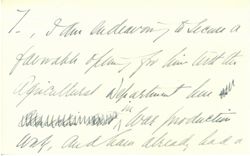 7., I am endeavoring to secure a
favorable opening for him with the
Agricultural Department here
in War production
way, and have already had a